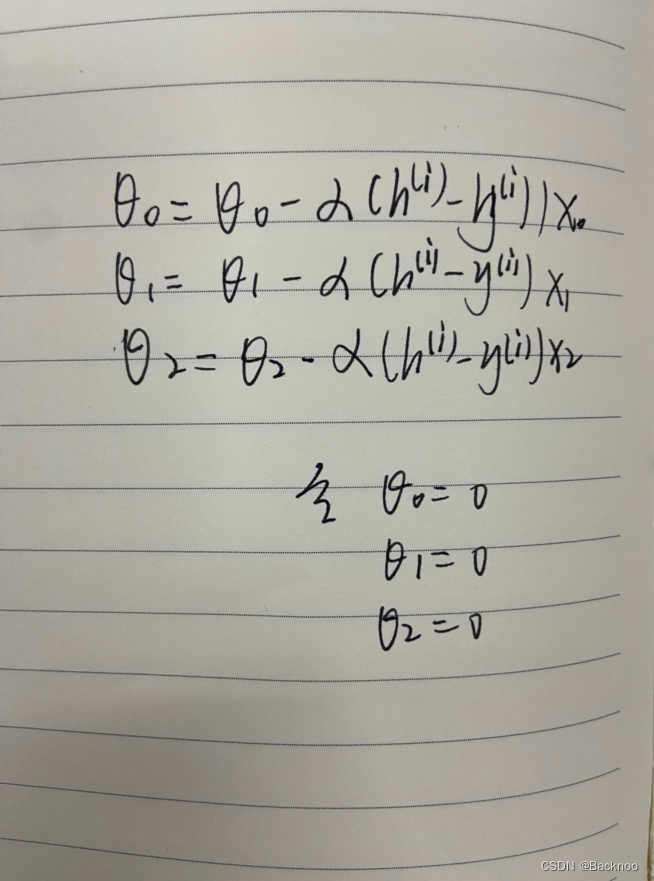 θ₀ = θ₀ - α(h⁽ⁱ⁾ - y⁽ⁱ⁾)x₀
θ₁ = θ₁ - α(h⁽ⁱ⁾ - y⁽ⁱ⁾)x₁
θ₂ = θ₂ - α(h⁽ⁱ⁾ - y⁽ⁱ⁾)x₂
令 θ₀ = 0
θ₁ = 0
θ₂ = 0
CSDN @Backnoo